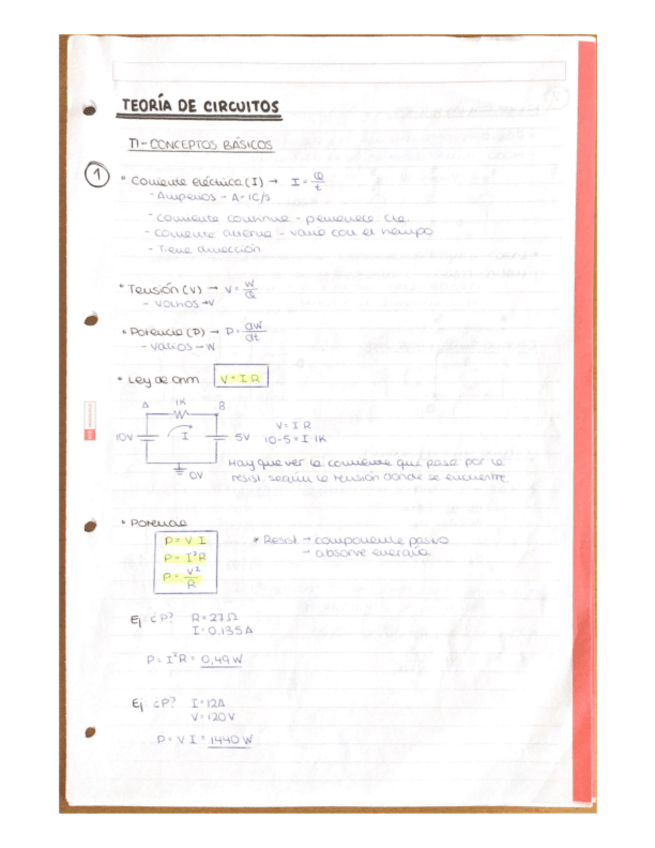 TEORÍA DE CIRCUITOS
T1-CONCEPTOS BÁSICOS
1
• Corriente eléctrica (I) → I = Q/t
- Amperios - A = 1C/s
- corriente continua - permanece cte.
- corriente alterna - varía con el tiempo
- Tiene dirección
• Tensión (V) → V =
- voltios → V
• Potencia (P) → P = dW/dt
- vatios → W
• Ley de Ohm V = I R
A 1K B
10V I 5V
0V
V = I R
10-5 = I · 1K
Hay que ver la corriente que pasa por la
resist. según la tensión donde se encuentre
• Potencia
P = V I
P = I²R
P = V²/R
* Resist → componente pasivo
→ absorve energía
Ej ¿P? R = 27Ω
I = 0,135A
P = I²R = 0,49 W
Ej ¿P? I = 12A
V = 120 V
P = V I = 1440 W